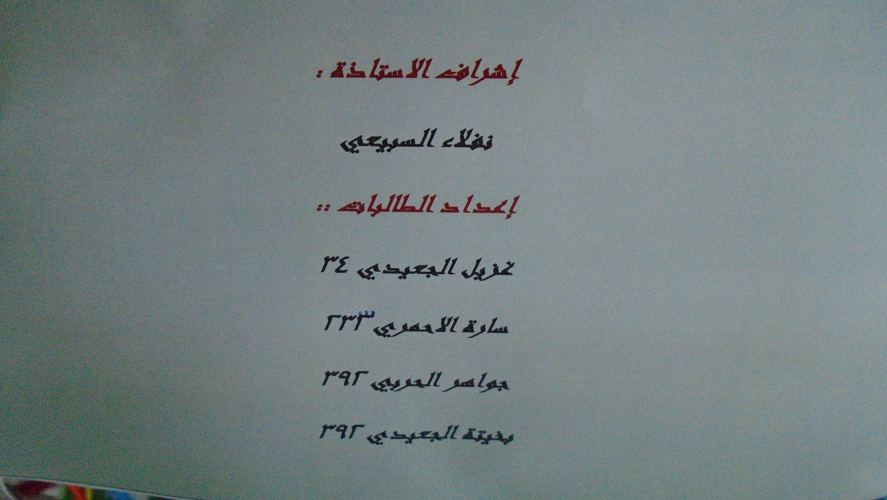 إشراف الاستاذة :
نفلاء السبيعي
إعداد الطالبات ::
غزيل الجعيدي ٣٤
سارة الاحمري
جواهر الحربي ٣٩٢
بخيتة الجعيدي ٣٩٢